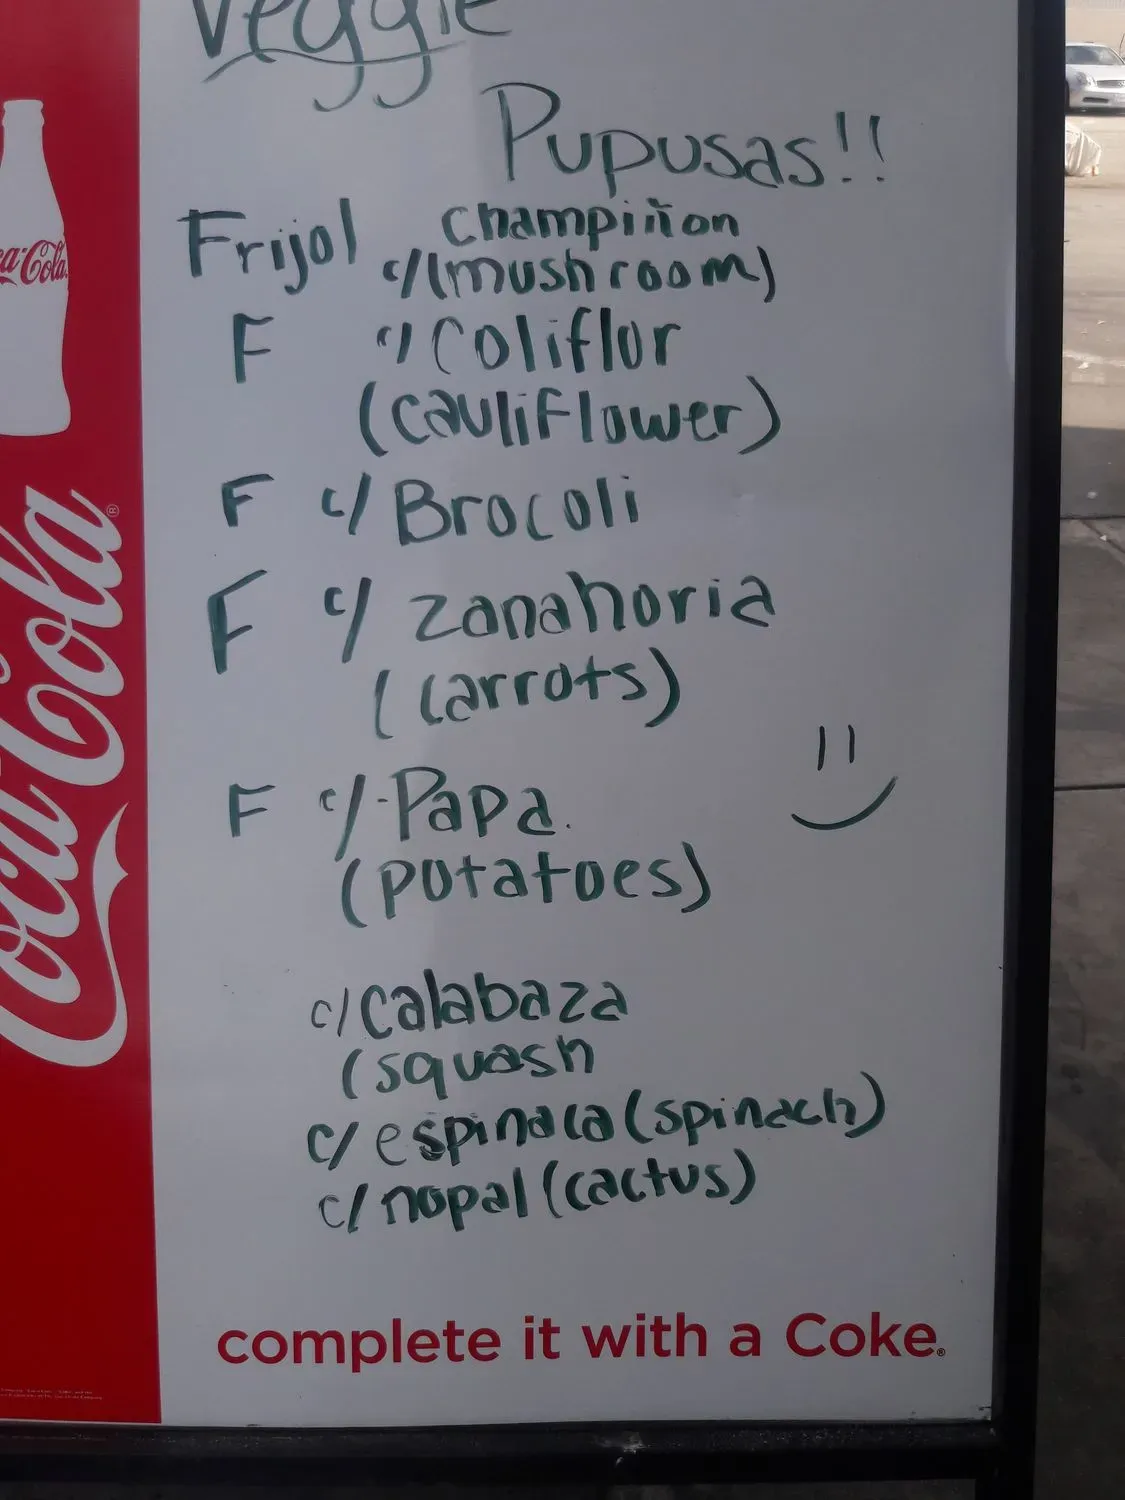 Veggie
Pupusas!!
Frijol champiñon
c/(mushroom)
F c/Coliflor
(cauliflower)
F c/ Brocoli
F c/ zanahoria
(carrots)
F c/-Papa.
(potatoes)
c/calabaza
(squash
c/ espinaca (spinach)
c/ nopal (cactus)
complete it with a Coke®
a-Cola
Coca-Cola®